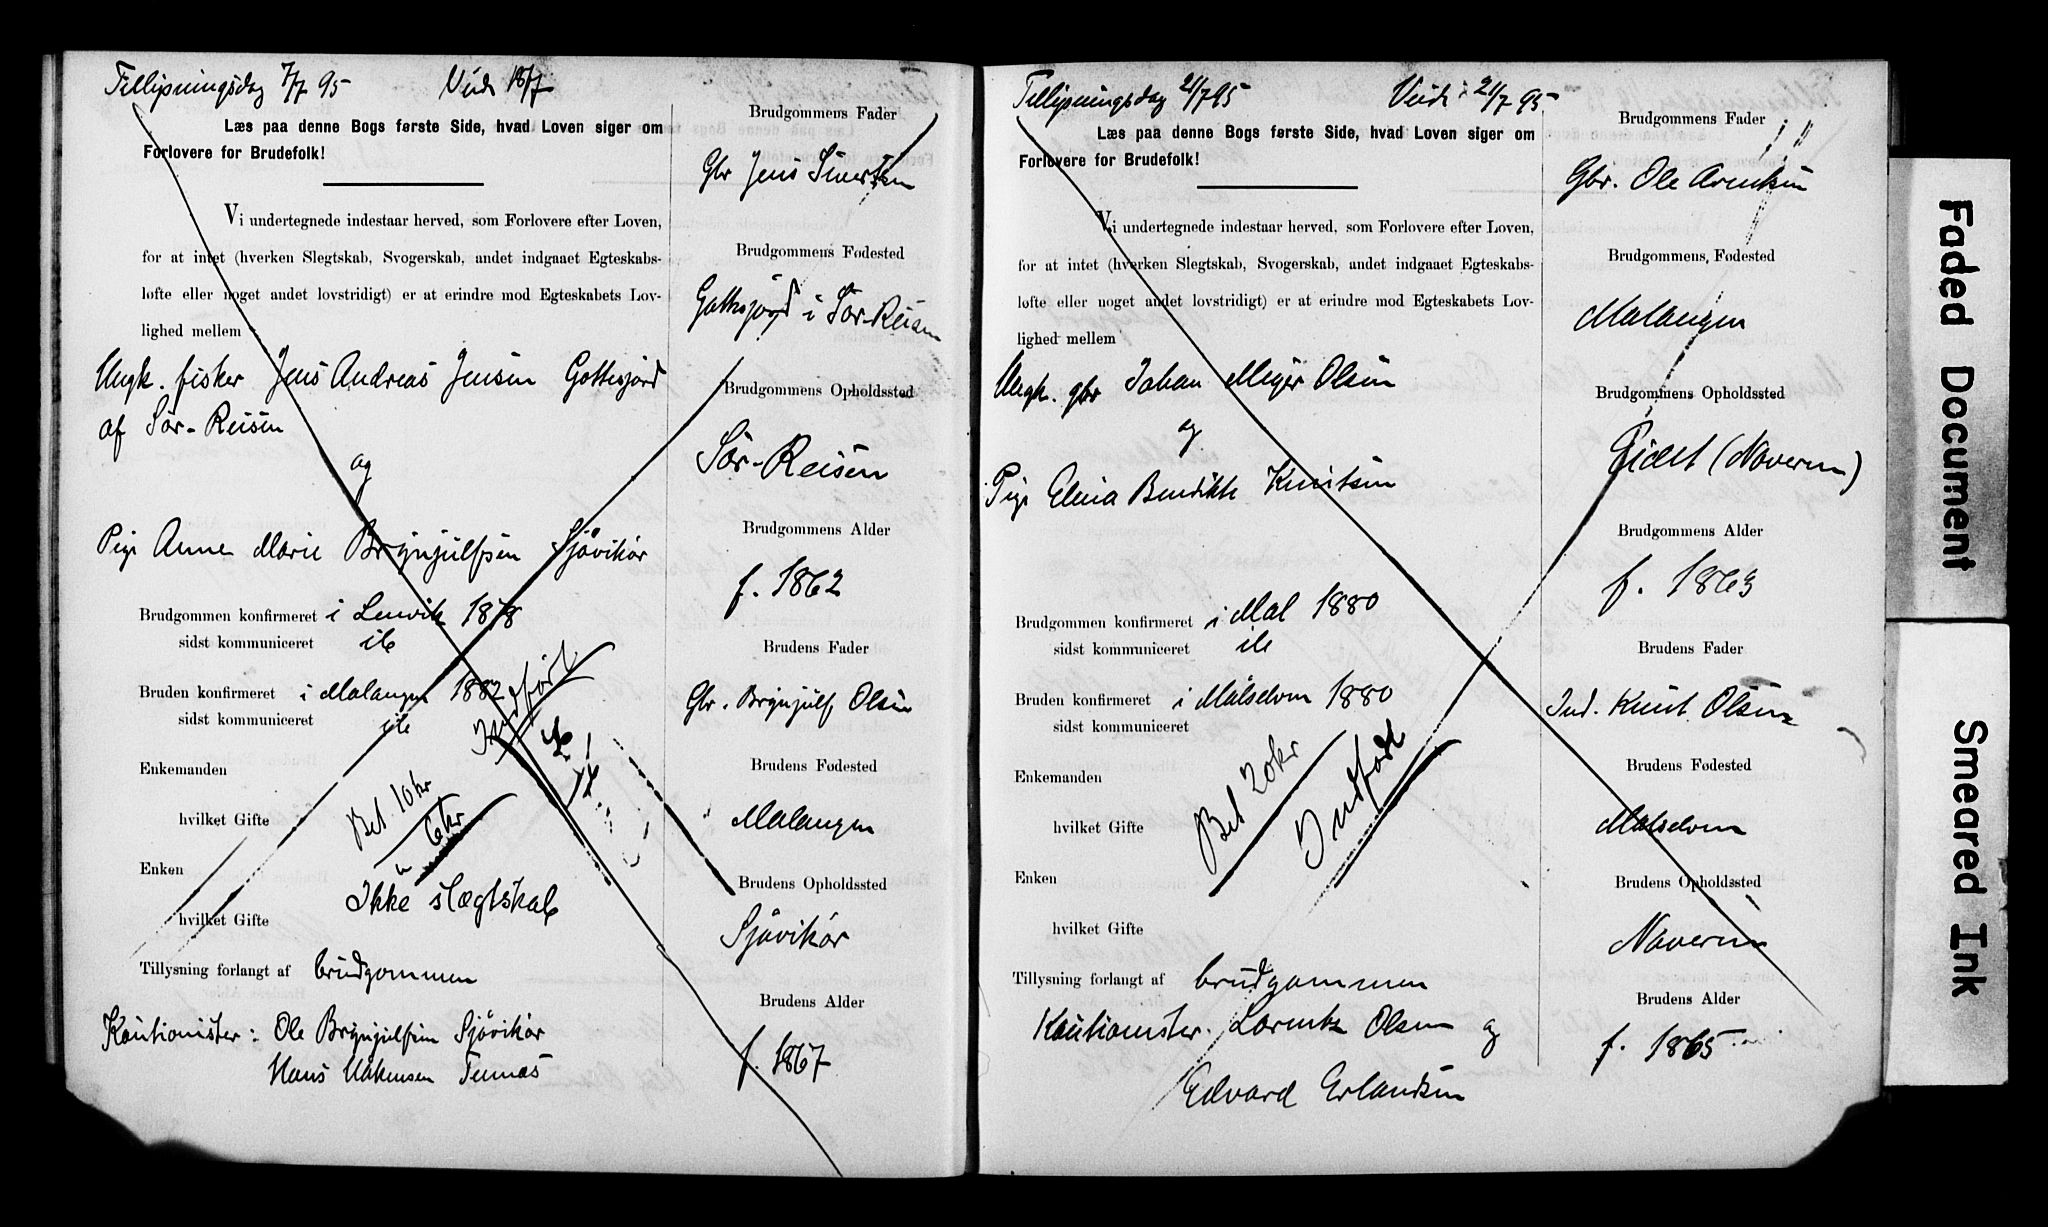 Tillysningsdag 7/7 95 Viede 18/7
Læs paa denne Bogs første Side, hvad Loven siger om
Forlovere for Brudefolk!
Vi undertegnede indestaar herved, som Forlovere efter Loven,
for at intet (hverken Slegtskab, Svogerskab, andet indgaaet Egteskabs-
løfte eller noget andet lovstridigt) er at erindre mod Egteskabets Lov-
lighed mellem
Ungk. fisker Jens Andreas Jensen Gottesjord
af Sør-Reisen
og
Pige Anne Marie Brynjulfsen Sjøvikør
Brudgommen konfirmeret i Lenvik 1878
sidst kommuniceret ib
Bruden konfirmeret i Malangen 1882
sidst kommuniceret ib
Indført
Enkemanden
hvilket Gifte
Bet. 10 kr
6 kr
Enken
Ikke slægtskab
hvilket Gifte
Tillysning forlangt af brudgommen
Kautionister: Ole Brynjulfsen Sjøvikør
Hans Hakensen
Brudgommens Fader
Gbr Jens Sivertsen
Brudgommens Fødested
Gottesjord i Sør-Reisen
Brudgommens Opholdssted
Sør-Reisen
Brudgommens Alder
f. 1862
Brudens Fader
Gbr. Brynjulf Olsen
Brudens Fødested
Malangen
Brudens Opholdssted
Sjøvikør
Brudens Alder
f. 1867
Tillysningsdag 21/7 95 Viede 21/7 95
Læs paa denne Bogs første Side, hvad Loven siger om
Forlovere for Brudefolk!
Vi undertegnede indestaar herved, som Forlovere efter Loven,
for at intet (hverken Slegtskab, Svogerskab, andet indgaaet Egteskabs-
løfte eller noget andet lovstridigt) er at erindre mod Egteskabets Lov-
lighed mellem
Ungk. gbr Johan Meyer Olsen
og
Pige Elena Bendikte Knutsen
Brudgommen konfirmeret i Mal 1880
sidst kommuniceret ib
Bruden konfirmeret i Målselven 1880
sidst kommuniceret
Enkemanden
hvilket Gifte
Bet 20 kr
Indført
Enken
hvilket Gifte
Tillysning forlangt af brudgommen
Kautionister. Lorentz Olsen og
Edvard Erlandsen
Brudgommens Fader
Gbr. Ole Arentsen
Brudgommens Fødested
Malangen
Brudgommens Opholdssted
Eidet (Naveren)
Brudgommens Alder
f. 1863
Brudens Fader
Ind. Knut Olsen
Brudens Fødested
Målselven
Brudens Opholdssted
Naveren
Brudens Alder
f. 1865
Faded Document
Smeared Ink